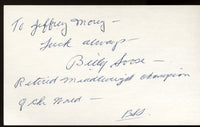 To Jeffrey Morey -
Luck always -
Billy Soose -
Retired Middleweight Champion
of the World -
B.S.